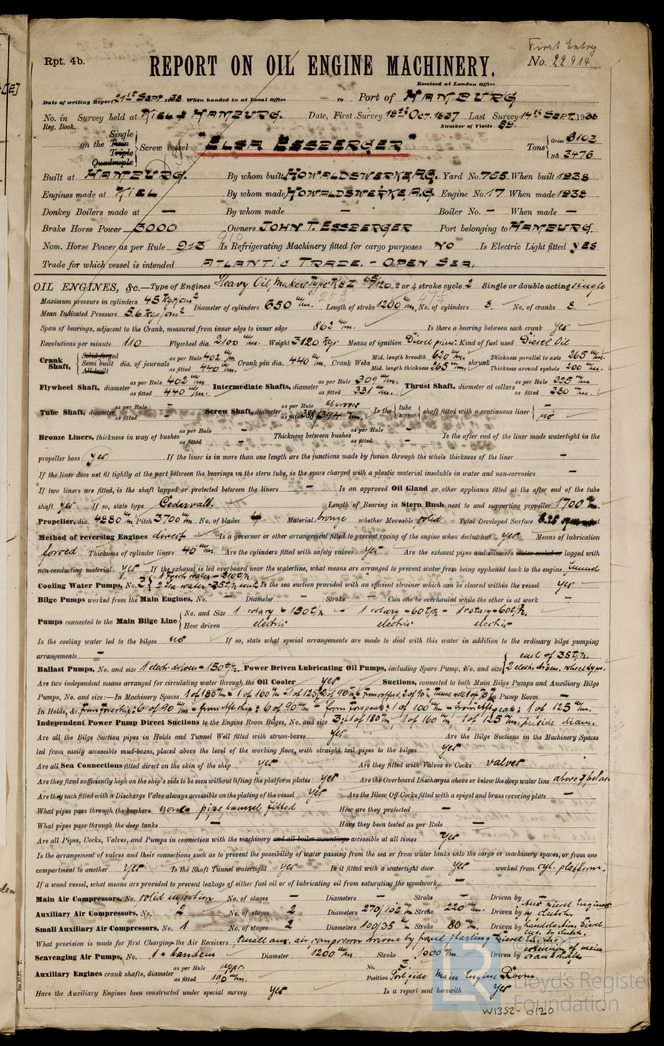 First Entry
Rpt. 4b.
No. 22914
REPORT ON OIL ENGINE MACHINERY.
Received at London Office
Date of writing Report 21st Sept. 38 When handed in at Local Office to Port of HAMBURG
No. in Survey held at KIEL & HAMBURG. Date, First Survey 18th Oct. 1937 Last Survey 14th SEPT. 1938
Reg. Book. Number of Visits
Single
on the Twin Screw vessel "ELSA ESSBERGER" Tons Gross 6103
Triple
Quadruple Net 3476
Built at HAMBURG. By whom built HOWALDSWERKE A.G. Yard No. 765 When built 1938
Engines made at KIEL By whom made HOWALDSWERKE A.G. Engine No. 17 When made 1938
Donkey Boilers made at — By whom made — Boiler No. — When made —
Brake Horse Power 3000 Owners JOHN T. ESSBERGER Port belonging to HAMBURG
Nom. Horse Power as per Rule 913 Is Refrigerating Machinery fitted for cargo purposes NO Is Electric Light fitted YES
Trade for which vessel is intended ATLANTIC TRADE. - OPEN SEA.
OIL ENGINES, &c.—Type of Engines Heavy Oil, 2 or 4 stroke cycle 2 Single or double acting single
Maximum pressure in cylinders 45 Kg/cm² Diameter of cylinders 650 m/m. Length of stroke 1200 m/m. No. of cylinders 8. No. of cranks 8.
Mean Indicated Pressure 5.6 Kg/cm²
Span of bearings, adjacent to the Crank, measured from inner edge to inner edge 862 m/m. Is there a bearing between each crank yes
Revolutions per minute 110 Flywheel dia. 2100 m/m. Weight 3120 Kgs Means of ignition Diesel princ. Kind of fuel used Diesel Oil
Crank Shaft, Solid forged Semi built All built dia. of journals as per Rule 402 m/m as fitted 440 m/m Crank pin dia. 440 m/m Crank Webs Mid. length breadth 620 m/m Mid. length thickness 265 m/m shrunk Thickness parallel to axis 265 m/m Thickness around eyehole 200 m/m
Flywheel Shaft, diameter as per Rule 402 m/m as fitted 440 m/m. Intermediate Shafts, diameter as per Rule 309 m/m as fitted 331 m/m. Thrust Shaft, diameter at collars as per Rule 325 m/m as fitted 350 m/m.
Tube Shaft, diameter as per Rule — as fitted — Screw Shaft, diameter as per Rule as fitted Is the tube screw shaft fitted with a continuous liner — no
Bronze Liners, thickness in way of bushes as per Rule — as fitted — Thickness between bushes as per Rule — as fitted — Is the after end of the liner made watertight in the
propeller boss yes If the liner is in more than one length are the junctions made by fusion through the whole length of the liner —
If the liner does not fit tightly at the part between the bearings in the stern tube, is the space charged with a plastic material insoluble in water and non-corrosive —
If two liners are fitted, is the shaft lapped or protected between the liners — Is an approved Oil Gland or other appliance fitted at the after end of the tube
shaft yes If so, state type Cedervall. Length of Bearing in Stern Bush next to and supporting propeller 1700 m/m.
Propeller, dia. 4550 m/m. Pitch 3700 m/m. No. of blades 4 Material bronze whether Moveable solid Total Developed Surface
Method of reversing Engines direct Is a governor or other arrangement fitted to prevent racing of the engine when declutched yes Means of lubrication
forced Thickness of cylinder liners 40 m/m. Are the cylinders fitted with safety valves yes Are the exhaust pipes and silencers water cooled or lagged with
non-conducting material yes If the exhaust is led overboard near the waterline, what means are arranged to prevent water from being syphoned back to the engine funnel
Cooling Water Pumps, No. Is the sea suction provided with an efficient strainer which can be cleared within the vessel yes
Bilge Pumps worked from the Main Engines, No. — Diameter — Stroke — Can one be overhauled while the other is at work —
Pumps connected to the Main Bilge Line No. and Size 1 rotary - 150 t/h. 1 rotary - 60 t/h - 1 rotary - 60 t/h.
How driven electric electric electric
Is the cooling water led to the bilges no If so, state what special arrangements are made to deal with this water in addition to the ordinary bilge pumping
arrangements — each of 35 t/h.
Ballast Pumps, No. and size 1 electr. driven - 150 t/h. Power Driven Lubricating Oil Pumps, including Spare Pump, No. and size 2 electr. driven
Are two independent means arranged for circulating water through the Oil Cooler yes Suctions, connected to both Main Bilge Pumps and Auxiliary Bilge
Pumps, No. and size:—In Machinery Spaces Pump Room —
In Holds, &c.
Independent Power Pump Direct Suctions to the Engine Room Bilges, No. and size 3: 1 of 180 m/m 1 of 160 m/m 1 of 125 m/m inside diam.
Are all the Bilge Suction pipes in Holds and Tunnel Well fitted with strum-boxes yes Are the Bilge Suctions in the Machinery Spaces
led from easily accessible mud-boxes, placed above the level of the working floor, with straight tail pipes to the bilges yes
Are all Sea Connections fitted direct on the skin of the ship yes Are they fitted with Valves or Cocks valves
Are they fixed sufficiently high on the ship's side to be seen without lifting the platform plates yes Are the Overboard Discharges above or below the deep water line above & below
Are they each fitted with a Discharge Valve always accessible on the plating of the vessel yes Are the Blow Off Cocks fitted with a spigot and brass covering plate —
What pipes pass through the bunkers none pipe tunnel fitted How are they protected —
What pipes pass through the deep tanks — Have they been tested as per Rule —
Are all Pipes, Cocks, Valves, and Pumps in connection with the machinery and all boiler mountings accessible at all times yes
Is the arrangement of valves and their connections such as to prevent the possibility of water passing from the sea or from water tanks into the cargo or machinery spaces, or from one
compartment to another yes Is the Shaft Tunnel watertight yes Is it fitted with a watertight door yes worked from cyl. platform.
If a wood vessel, what means are provided to prevent leakage of either fuel oil or of lubricating oil from saturating the woodwork —
Main Air Compressors, No. solid injection No. of stages — Diameters — Stroke — Driven by —
Auxiliary Air Compressors, No. 2 No. of stages 2 Diameters Stroke 220 m/m. Driven by Aux. Diesel Engines by clutch.
Small Auxiliary Air Compressors, No. 1 No. of stages 2 Diameters Stroke 80 m/m. Driven by
What provision is made for first Charging the Air Receivers small aux. air compressor driven by hand starting Diesel
Scavenging Air Pumps, No. 1 - tandem Diameter 1200 m/m Stroke 1000 m/m Driven by
Auxiliary Engines crank shafts, diameter as per Rule appr. as fitted 190 m/m. No. Position Portside Main Engine Room
Have the Auxiliary Engines been constructed under special survey yes Is a report sent herewith yes
Lloyd's Register
Foundation
W1352-0120